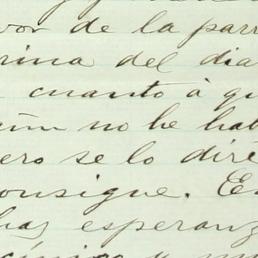 vor de la parr
rina del dia
cuanto á qu
aún no he hab
ero se lo dire
onsigue. En
haz esperanz